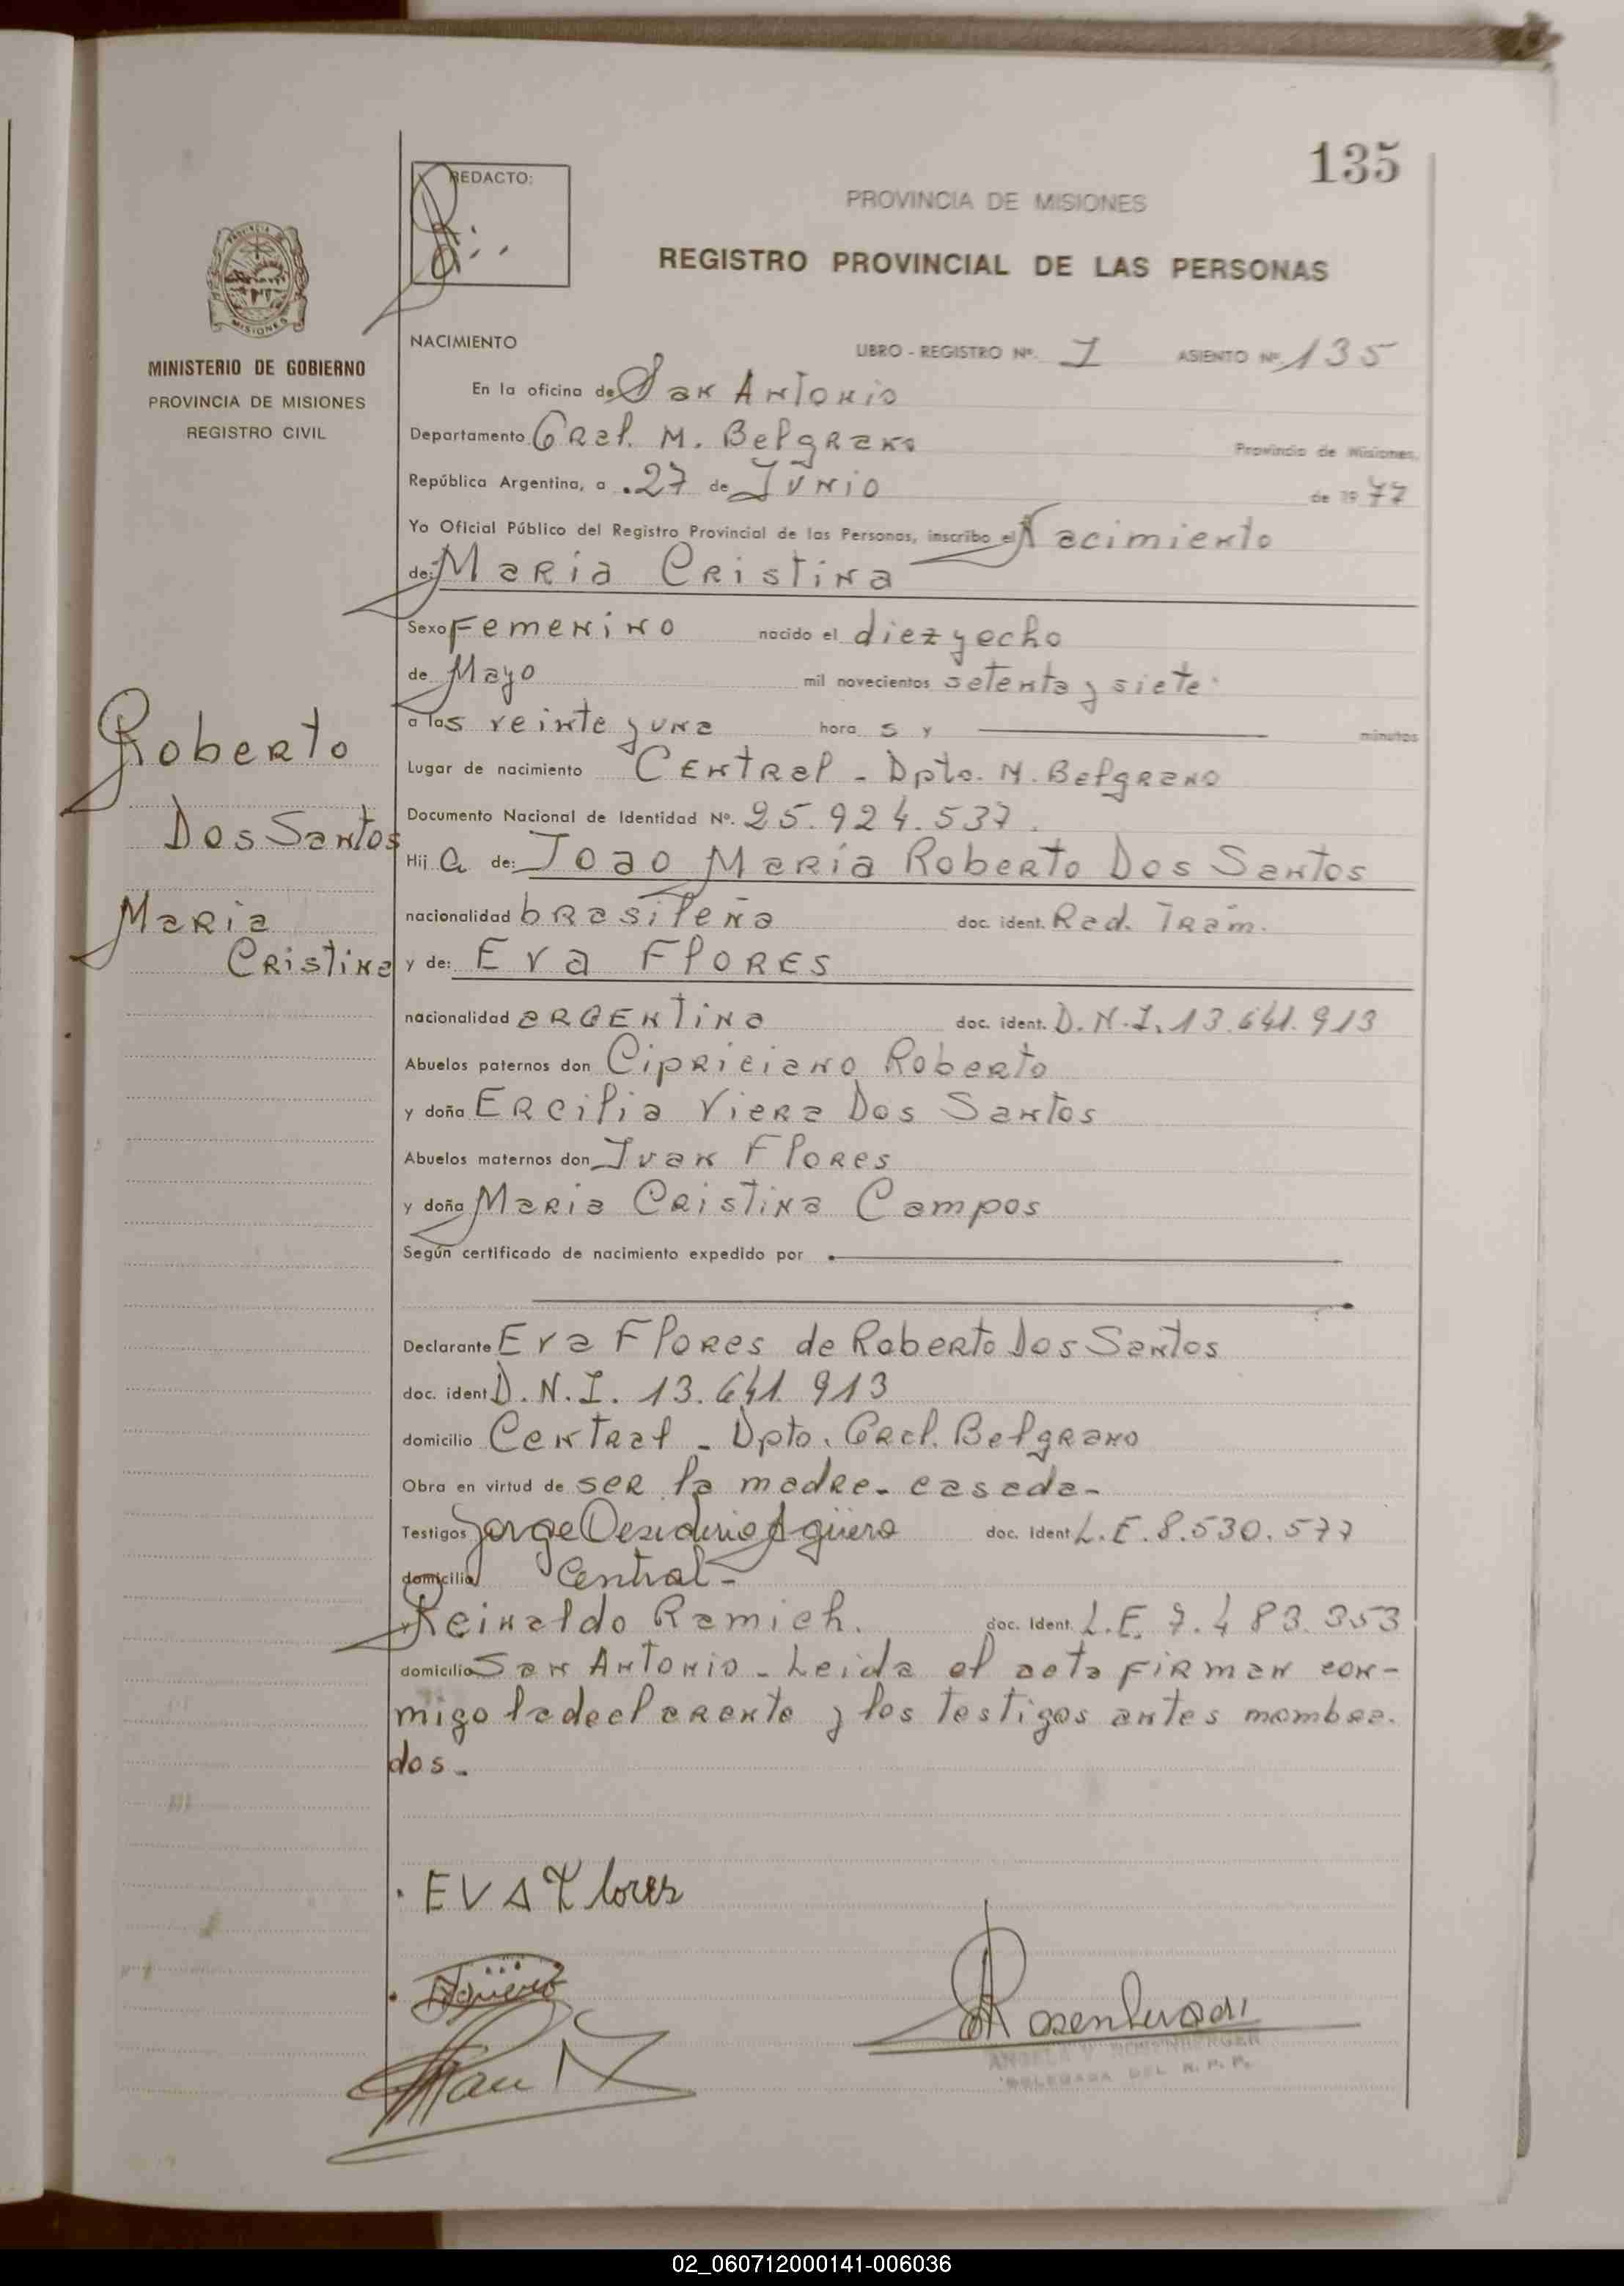 135
REDACTO:
PROVINCIA DE MISIONES
REGISTRO PROVINCIAL DE LAS PERSONAS
MISIONES
MINISTERIO DE GOBIERNO
PROVINCIA DE MISIONES
REGISTRO CIVIL
Roberto
Dos Santos
Maria
Cristina
NACIMIENTO LIBRO - REGISTRO Nº. I ASIENTO Nº. 135
En la oficina de San Antonio
Departamento Gral. M. Belgrano Provincia de Misiones,
República Argentina, a 27 de Junio de 1977
Yo Oficial Público del Registro Provincial de las Personas, inscribo el Nacimiento
de: Maria Cristina
Sexo Femenino nacido el diez y ocho
de Mayo mil novecientos setenta y siete
a las veinte y una hora s y minutos
Lugar de nacimiento Central - Dpto. M. Belgrano
Documento Nacional de Identidad Nº. 25.924.537.
Hij a de: Joao Maria Roberto Dos Santos
nacionalidad brasileña doc. ident. Rad. Tram.
y de: Eva Flores
nacionalidad argentina doc. ident. D.N.I. 13.641.913
Abuelos paternos don Cipriciano Roberto
y doña Ercilia Viera Dos Santos
Abuelos maternos don Ivan Flores
y doña Maria Cristina Campos
Según certificado de nacimiento expedido por
Declarante Eva Flores de Roberto Dos Santos
doc. ident D.N.I. 13.641.913
domicilio Central - Dpto. Gral. Belgrano
Obra en virtud de ser la madre - casada -
Testigos Jorge Desiderio Agüero doc. Ident. L.E. 8.530.577
domicilio Central -
Reinaldo Ramich. doc. Ident. L.E. 7.483.353
domicilio San Antonio - Leida el acta firman con-
migo la declarante y los testigos antes mombra-
dos -
EVA Flores
Agüero
ANGELA ROSENBERGER
DELEGADA DEL R. P. P.
02_060712000141-006036